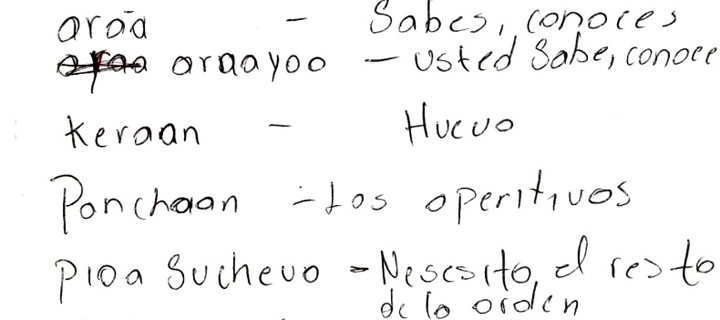 aroā - Sabes, conoces
araayoo - usted Sabe, conoce
Keraan - Huevo
Panchaan - Los aperitivos
Pioa Suchevo - Nesesito el resto
de la orden